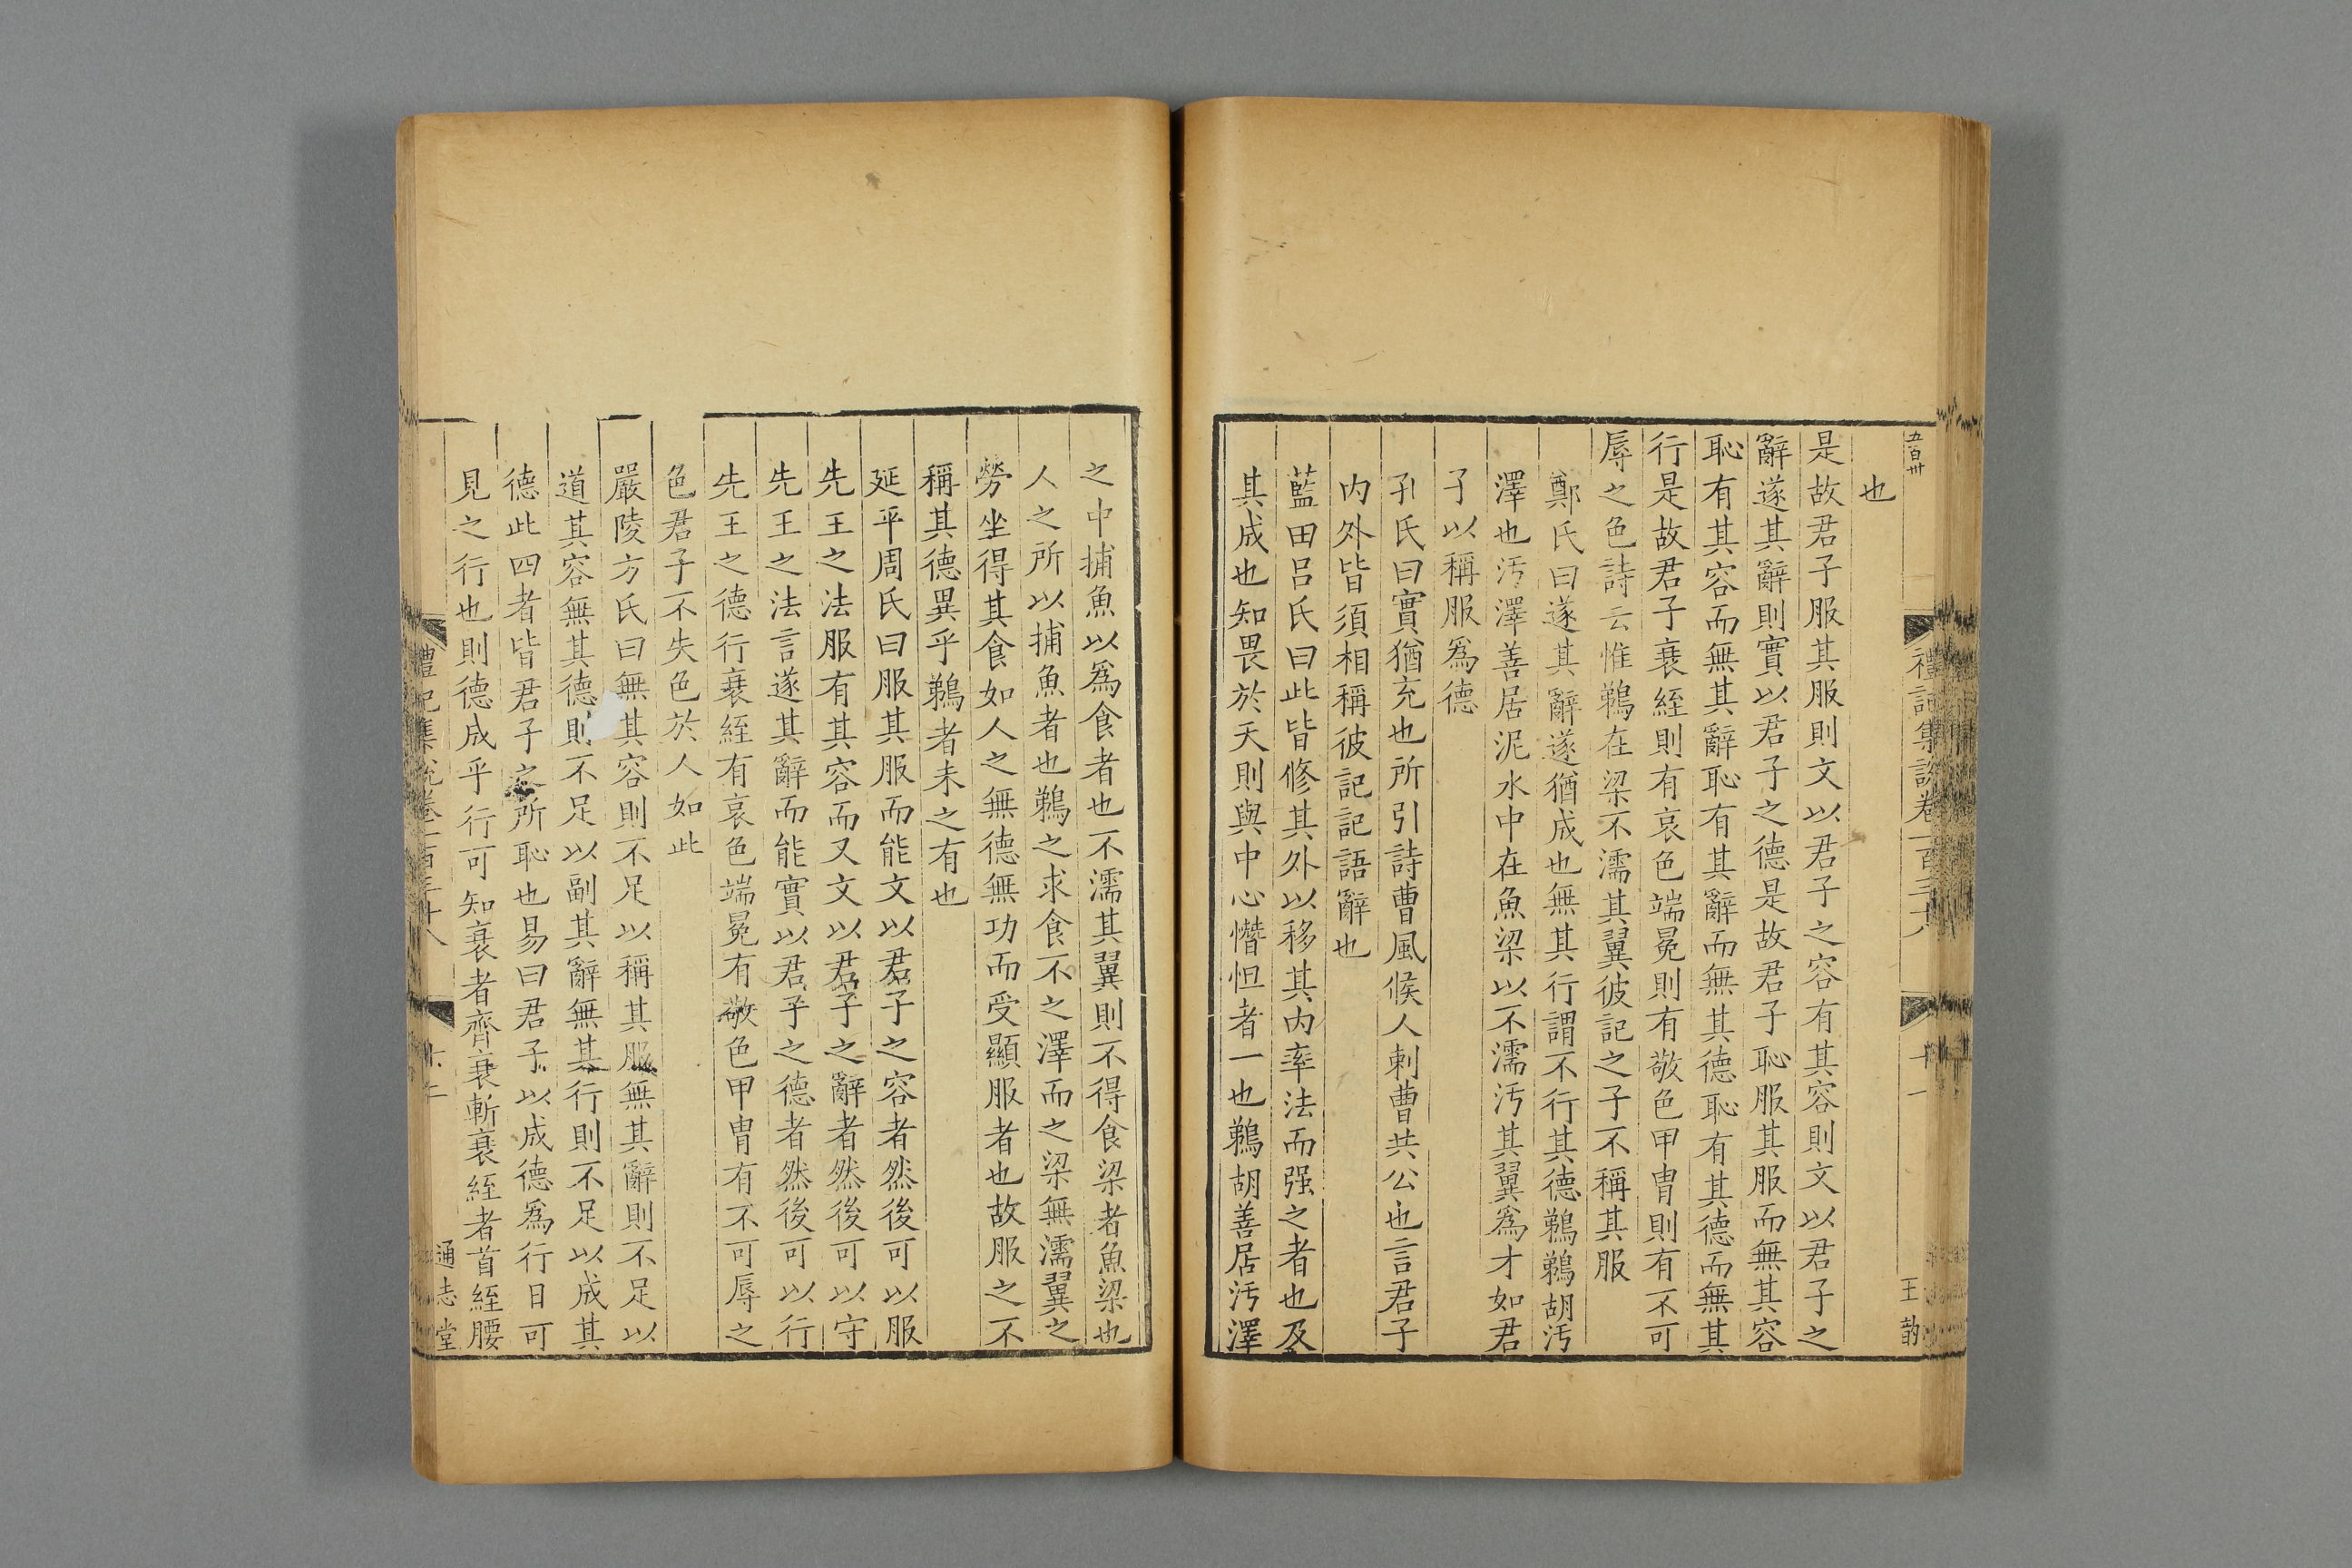 五百卅
禮記集說卷一百三十八
十一
王韵
也
是故君子服其服則文以君子之容有其容則文以君子之
辭遂其辭則實以君子之德是故君子恥服其服而無其容
恥有其容而無其辭恥有其辭而無其德恥有其德而無其
行是故君子衰絰則有哀色端冕則有敬色甲冑則有不可
辱之色詩云惟鵜在梁不濡其翼彼記之子不稱其服
鄭氏曰遂其辭遂猶成也無其行謂不行其德鵜鵜胡汚
澤也汚澤善居泥水中在魚梁以不濡汚其翼爲才如君
子以稱服爲德
孔氏曰實猶充也所引詩曹風候人刺曹共公也言君子
内外皆須相稱彼記記語辭也
藍田呂氏曰此皆修其外以移其内率法而强之者也及
其成也知畏於天則與中心憯怛者一也鵜胡善居汚澤
之中捕魚以爲食者也不濡其翼則不得食梁者魚梁也
人之所以捕魚者也鵜之求食不之澤而之梁無濡翼之
勞坐得其食如人之無德無功而受顯服者也故服之不
稱其德異乎鵜者未之有也
延平周氏曰服其服而能文以君子之容者然後可以服
先王之法服有其容而又文以君子之辭者然後可以守
先王之法言遂其辭而能實以君子之德者然後可以行
先王之德行衰絰有哀色端冕有敬色甲冑有不可辱之
色君子不失色於人如此
嚴陵方氏曰無其容則不足以稱其服無其辭則不足以
道其容無其德則不足以副其辭無其行則不足以成其
德此四者皆君子之所恥也易曰君子以成德爲行日可
見之行也則德成乎行可知衰者齊衰斬衰絰者首絰腰
禮記集說卷一百三十八
通志堂